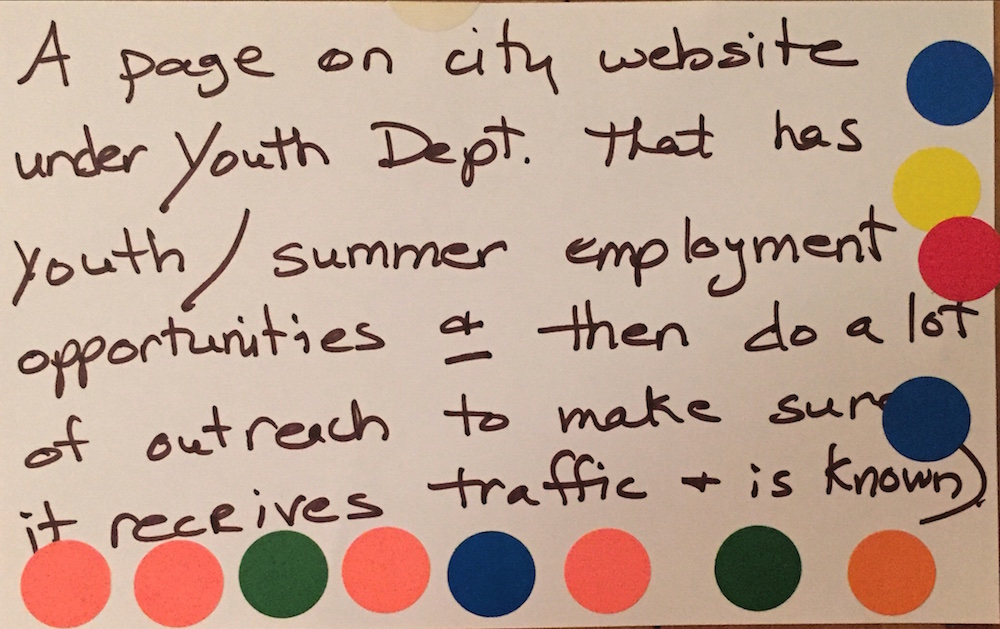 A page on city website
under Youth Dept. that has
youth/summer employment
opportunities & then do a lot
of outreach to make sure
it receives traffic + is known)